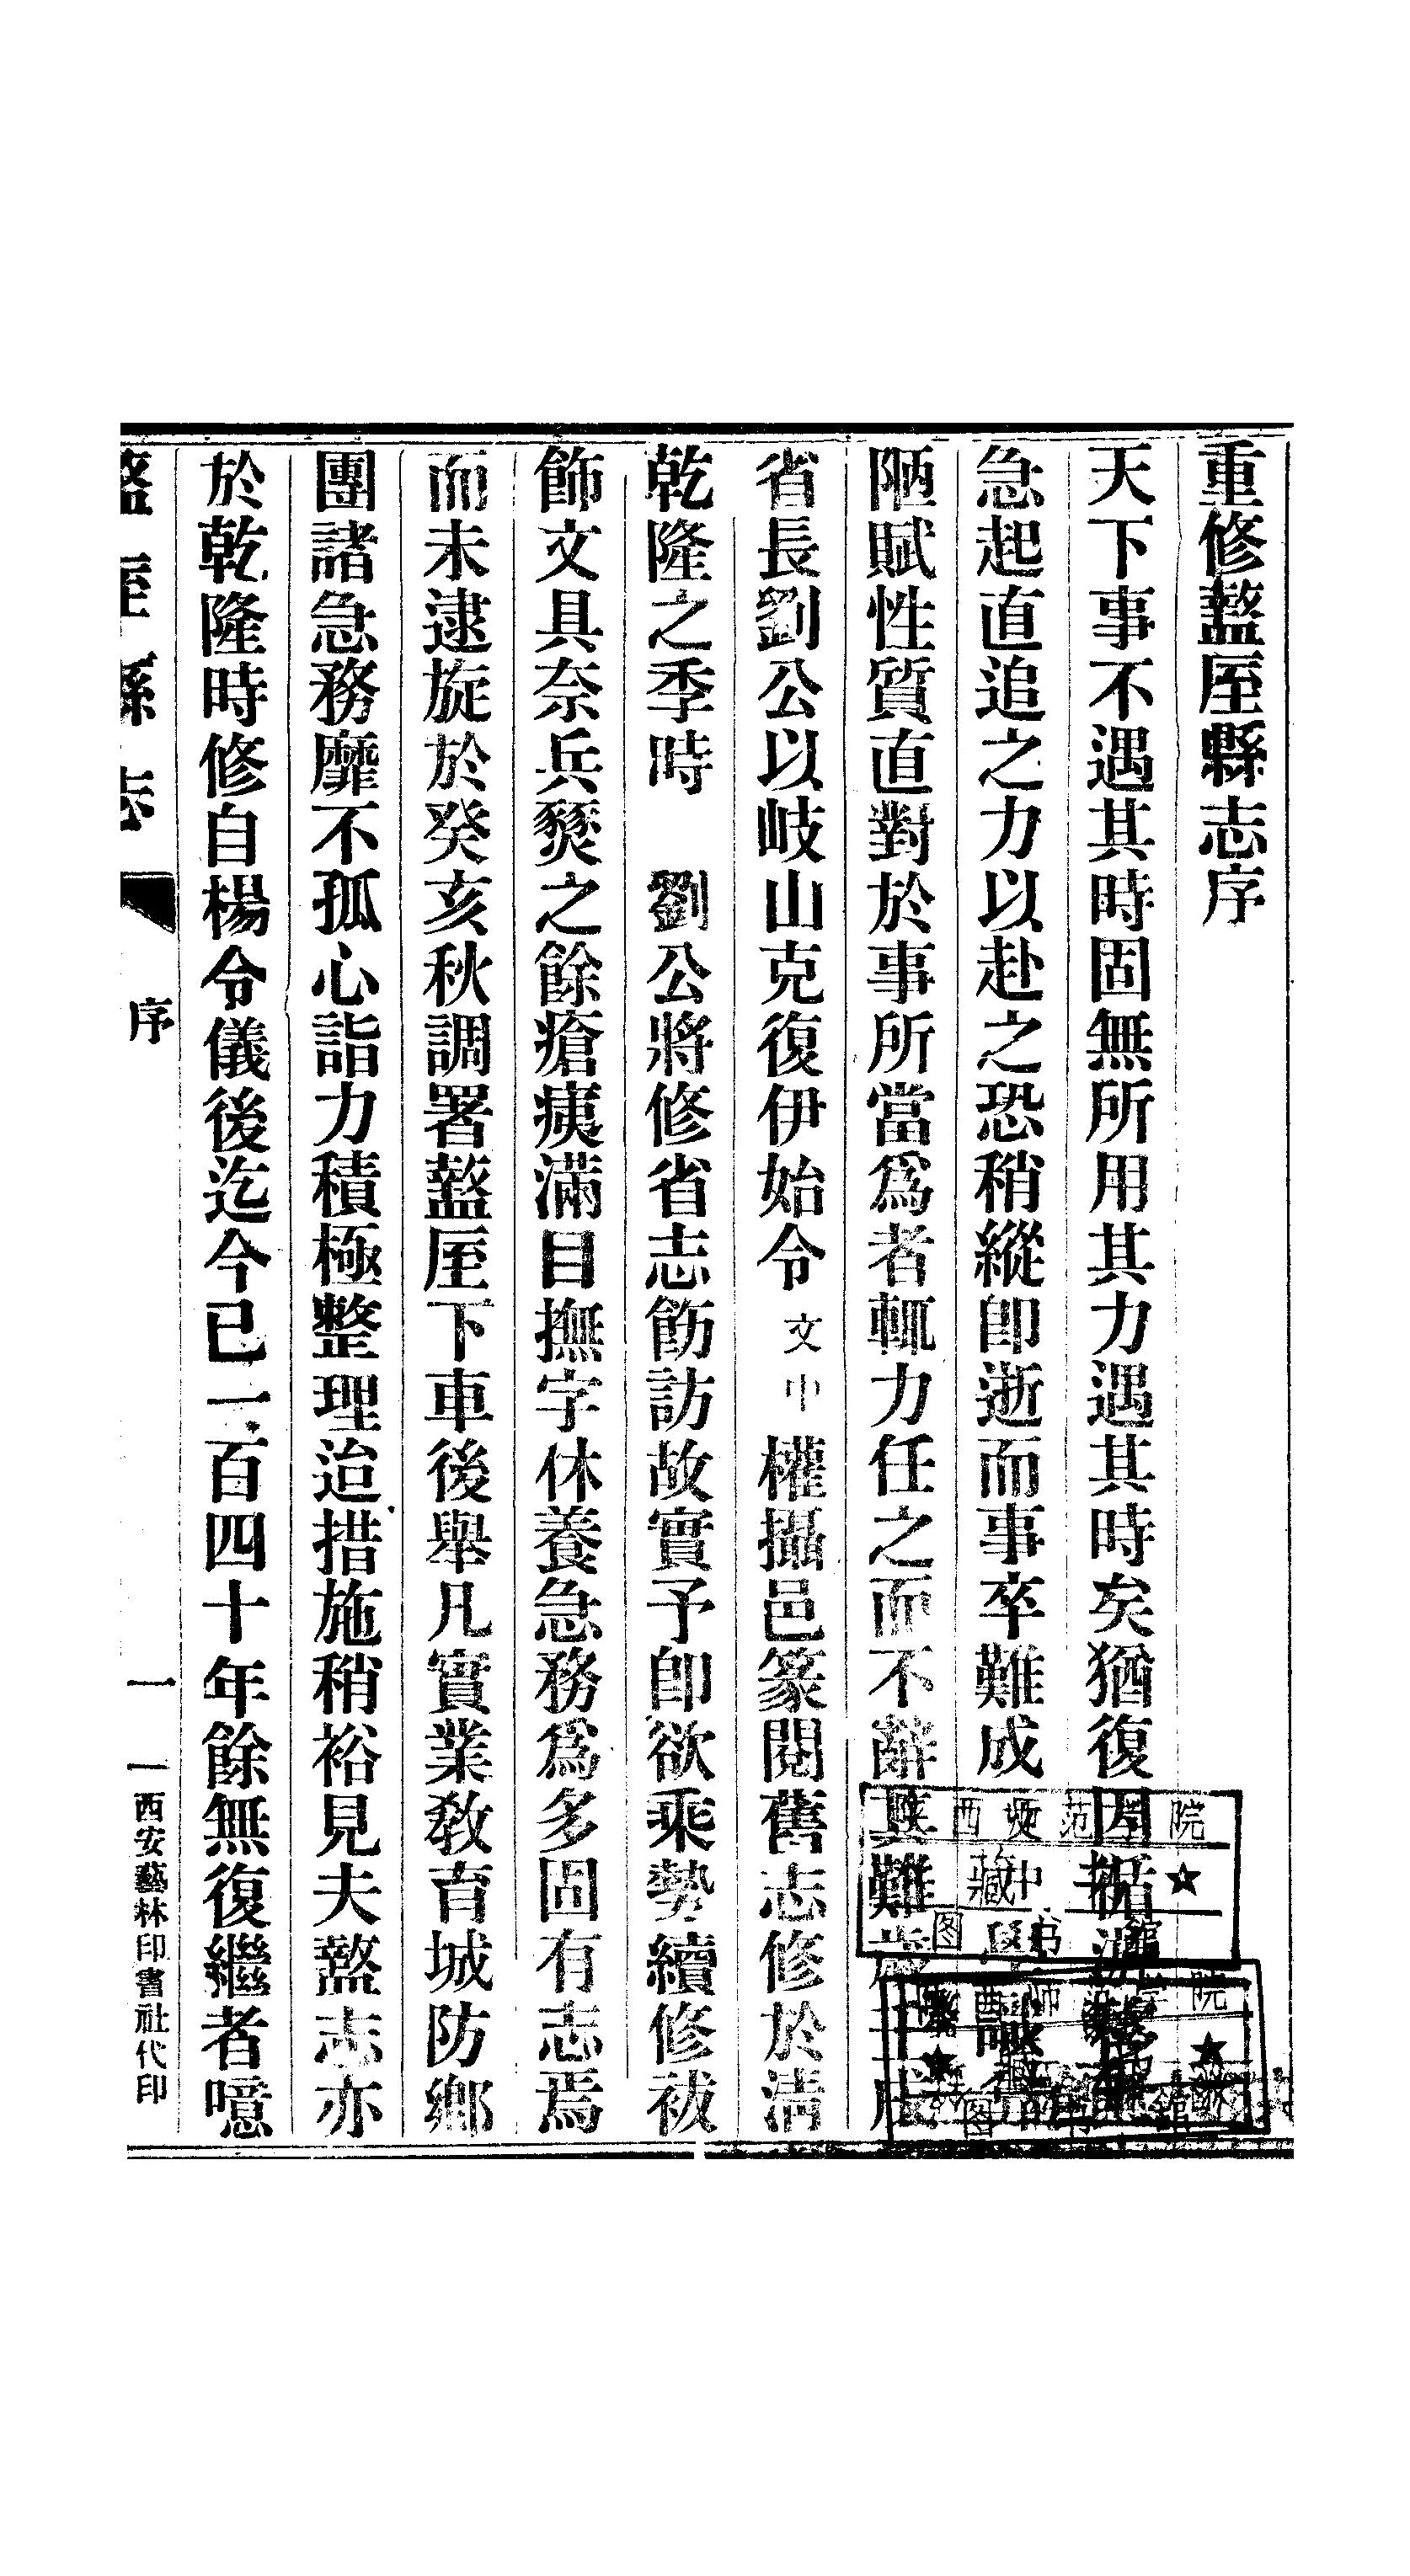 重修盩厔縣志序
天下事不遇其時固無所用其力遇其時矣猶復因循
急起直追之力以赴之恐稍縱即逝而事卒難成
陋賦性質直對於事所當爲者輒力任之而不辭其難歲壬戌
省長劉公以岐山克復伊始令文中權攝邑篆閱舊志修於清
乾隆之季時 劉公將修省志飭訪故實予即欲乘勢續修祓
飾文具奈兵燹之餘瘡痍滿目撫字休養急務爲多固有志焉
而未逮旋於癸亥秋調署盩厔下車後舉凡實業教育城防鄉
團諸急務靡不孤心詣力積極整理迨措施稍裕見夫盩志亦
於乾隆時修自楊令儀後迄今已一百四十年餘無復繼者噫
盩厔縣志
序
一
西安藝林印書社代印